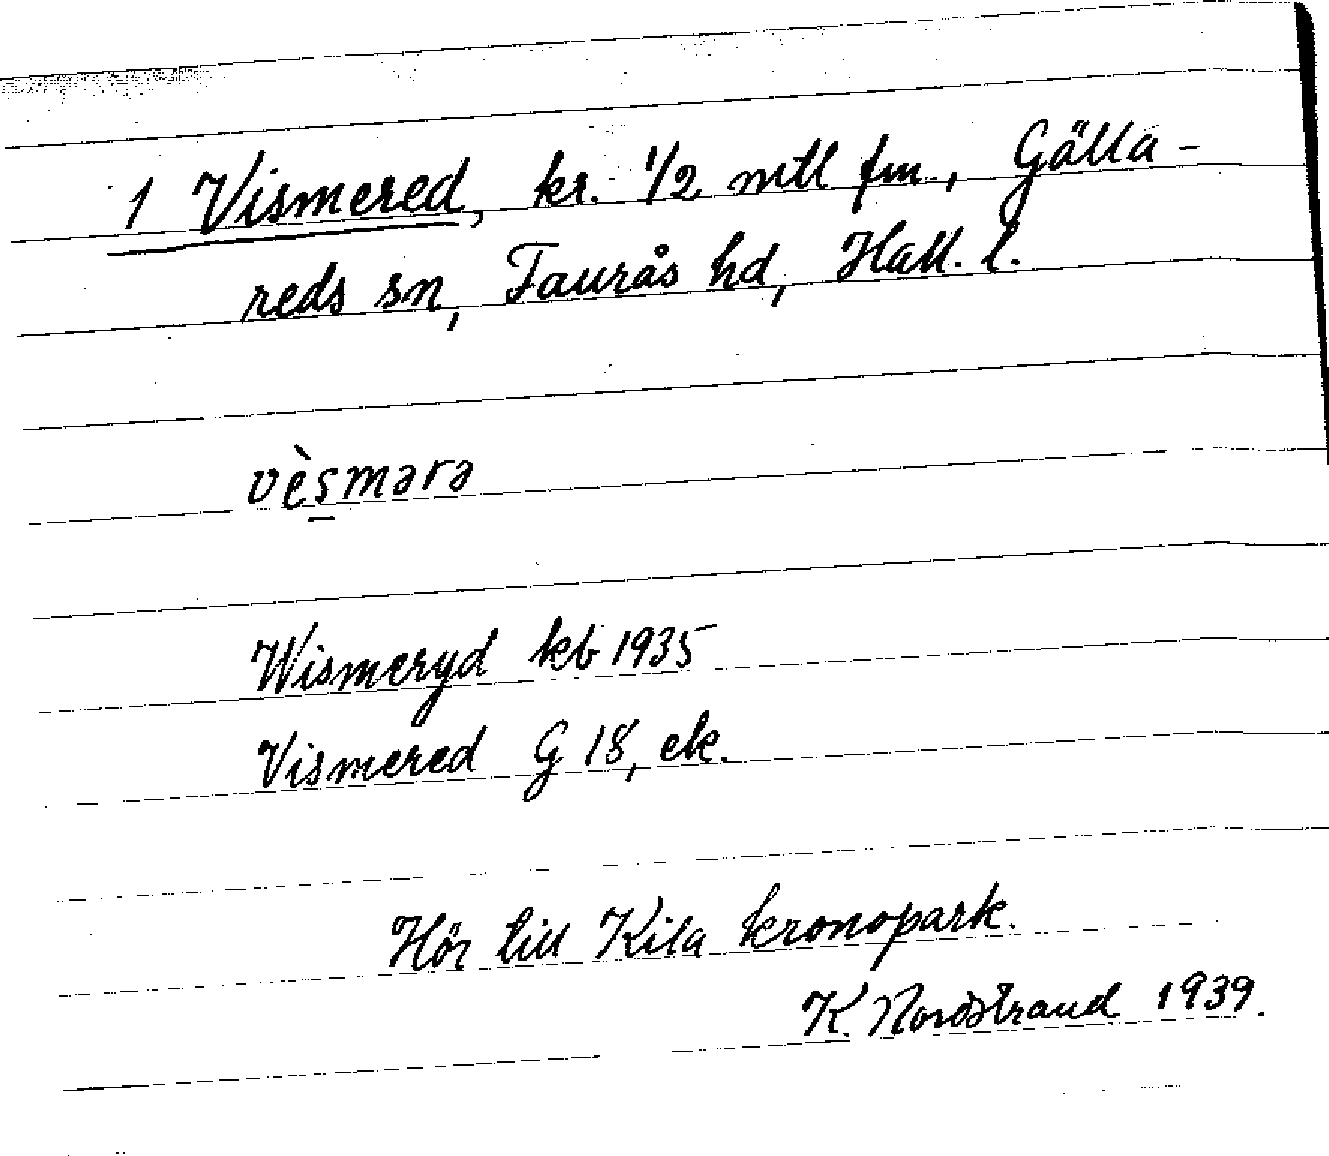 1 Vismered, kr. 1/2 mtl fm, Gälla-
reds sn, Faurås hd, Hall. l.
vèsmərə
Wismeryd kb 1935
Vismered G 18, ek.
Hör till Kila kronopark.
K. Nordstrand 1939.